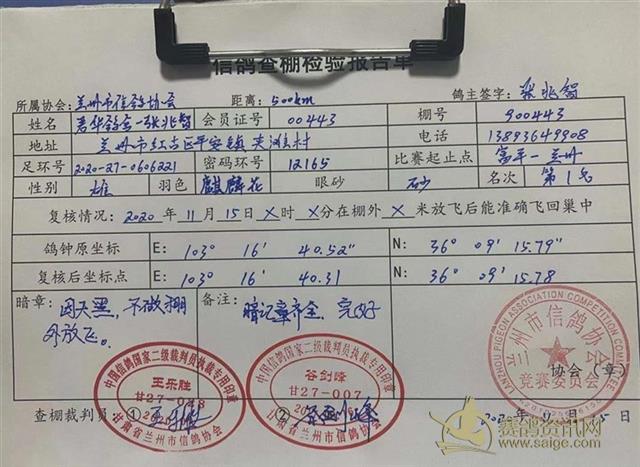 信鸽查棚检验报告单
所属协会: 兰州市信鸽协会 距离: 500km 鸽主签字: 张兆智
姓名 翥华鸽舍-张兆智 会员证号 00443 棚号 900443
地址 兰州市红古区平安镇夹滩村 电话 13893649908
足环号 2020-27-0606221 密码环号 12165 比赛起止点 富平-兰州
性别 雄 羽色 麒麟花 眼砂 砂 名次 第1名
复核情况: 2020 年 11 月 15 日 X 时 X 分在棚外 X 米放飞后能准确飞回巢中
鸽钟原坐标 E: 103° 16' 40.52" N: 36° 09' 15.79"
复核后坐标点 E: 103° 16' 40.31 N: 36° 09' 15.78
暗章: 因天黑,不做棚外放飞。
备注: 暗记章齐全、完好
中国信鸽国家二级裁判员执裁专用印章
王乐胜
甘27-048
甘肃省兰州市信鸽协会
中国信鸽国家二级裁判员执裁专用印章
谷剑峰
甘27-007
甘肃省兰州市信鸽协会
LANZHOU PIGEON ASSOCIATION COMPETITION COMMITTEE
兰州市信鸽协会
竞赛委员会
协会(章)
查棚裁判员 ① 王乐胜 ② 谷剑峰
2020 年 月 15 日
赛鸽资讯网
www.saige.com